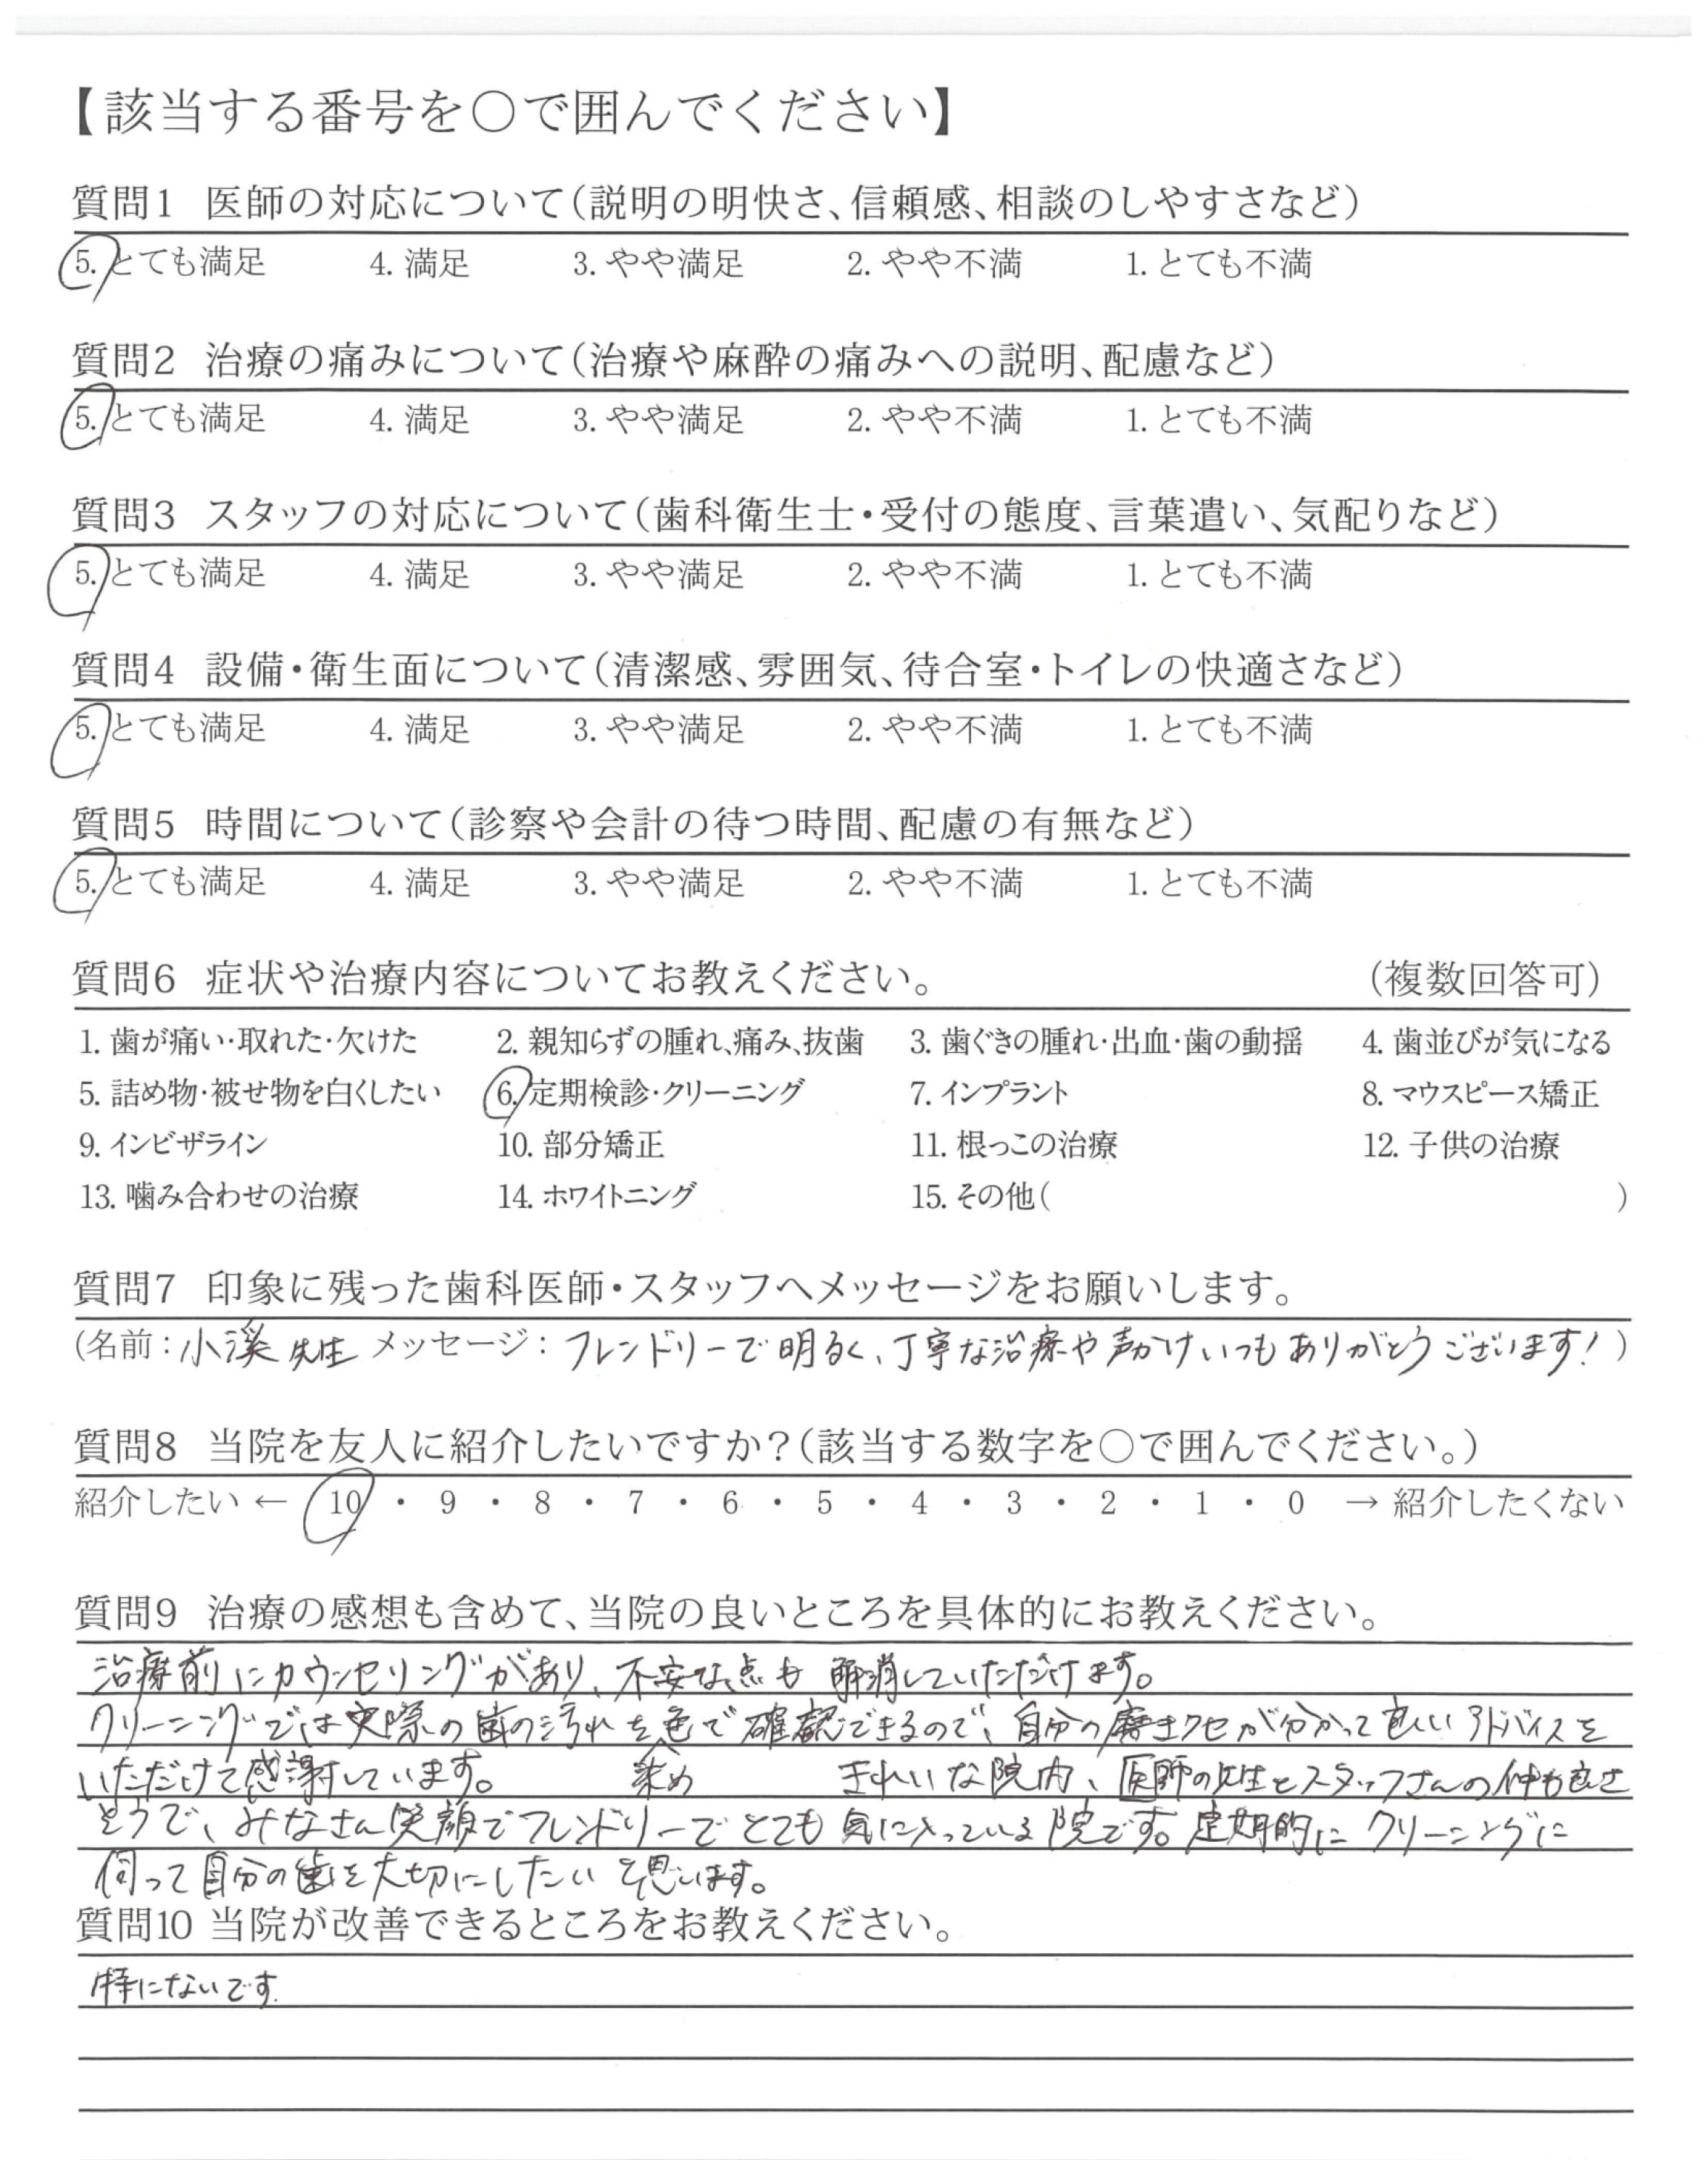 【該当する番号を○で囲んでください】
質問1 医師の対応について(説明の明快さ、信頼感、相談のしやすさなど)
5. とても満足 4. 満足 3. やや満足 2. やや不満 1. とても不満
質問2 治療の痛みについて(治療や麻酔の痛みへの説明、配慮など)
5. とても満足 4. 満足 3. やや満足 2. やや不満 1. とても不満
質問3 スタッフの対応について(歯科衛生士・受付の態度、言葉遣い、気配りなど)
5. とても満足 4. 満足 3. やや満足 2. やや不満 1. とても不満
質問4 設備・衛生面について(清潔感、雰囲気、待合室・トイレの快適さなど)
5. とても満足 4. 満足 3. やや満足 2. やや不満 1. とても不満
質問5 時間について(診察や会計の待つ時間、配慮の有無など)
5. とても満足 4. 満足 3. やや満足 2. やや不満 1. とても不満
質問6 症状や治療内容についてお教えください。 (複数回答可)
1. 歯が痛い・取れた・欠けた 2. 親知らずの腫れ、痛み、抜歯 3. 歯ぐきの腫れ・出血・歯の動揺 4. 歯並びが気になる
5. 詰め物・被せ物を白くしたい 6. 定期検診・クリーニング 7. インプラント 8. マウスピース矯正
9. インビザライン 10. 部分矯正 11. 根っこの治療 12. 子供の治療
13. 噛み合わせの治療 14. ホワイトニング 15. その他( )
質問7 印象に残った歯科医師・スタッフへメッセージをお願いします。
(名前:小溪先生 メッセージ:フレンドリーで明るく、丁寧な治療や声かけいつもありがとうございます!)
質問8 当院を友人に紹介したいですか?(該当する数字を○で囲んでください。)
紹介したい ← 10 ・ 9 ・ 8 ・ 7 ・ 6 ・ 5 ・ 4 ・ 3 ・ 2 ・ 1 ・ 0 → 紹介したくない
質問9 治療の感想も含めて、当院の良いところを具体的にお教えください。
治療前にカウンセリングがあり、不安な点も解消していただけます。
クリーニングでは実際の歯の汚れを色で確認できるので、自分の磨きクセが分かって良いしアドバイスを
いただけて感謝しています。 染め きれいな院内、医師の先生とスタッフさんの仲も良さ
そうで、みなさん笑顔でフレンドリーでとても気に入っている院です。定期的にクリーニングに
伺って自分の歯を大切にしたいと思います。
質問10 当院が改善できるところをお教えください。
特にないです.